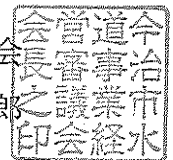 今治市水
道事業経
営審議会
会長之印
会
郎